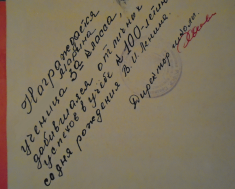 Награждается
ученица 5а класса,
добившаяся отличных
успехов в учёбе к 100-летию
со дня рождения В.И. Ленина.
Директор школы: